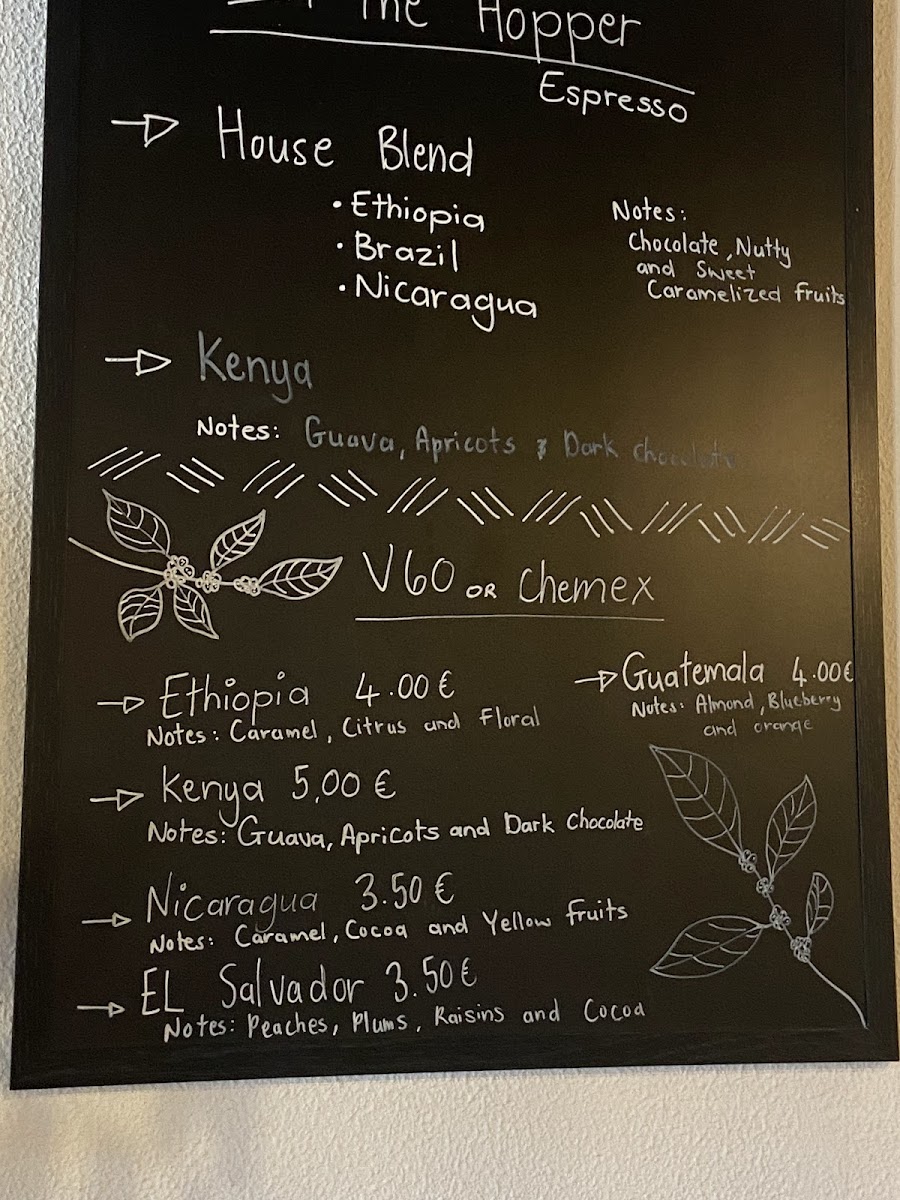 The Hopper
Espresso
House Blend
• Ethiopia
• Brazil
• Nicaragua
Notes:
Chocolate, Nutty
and Sweet
Caramelized fruits
Kenya
Notes: Guava, Apricots & Dark Chocolate
V60 OR Chemex
Ethiopia 4.00€
Notes: Caramel, Citrus and Floral
Guatemala 4.00€
Notes: Almond, Blueberry
and orange
Kenya 5,00€
Notes: Guava, Apricots and Dark Chocolate
Nicaragua 3.50€
Notes: Caramel, Cocoa and Yellow fruits
EL Salvador 3.50€
Notes: Peaches, Plums, Raisins and Cocoa